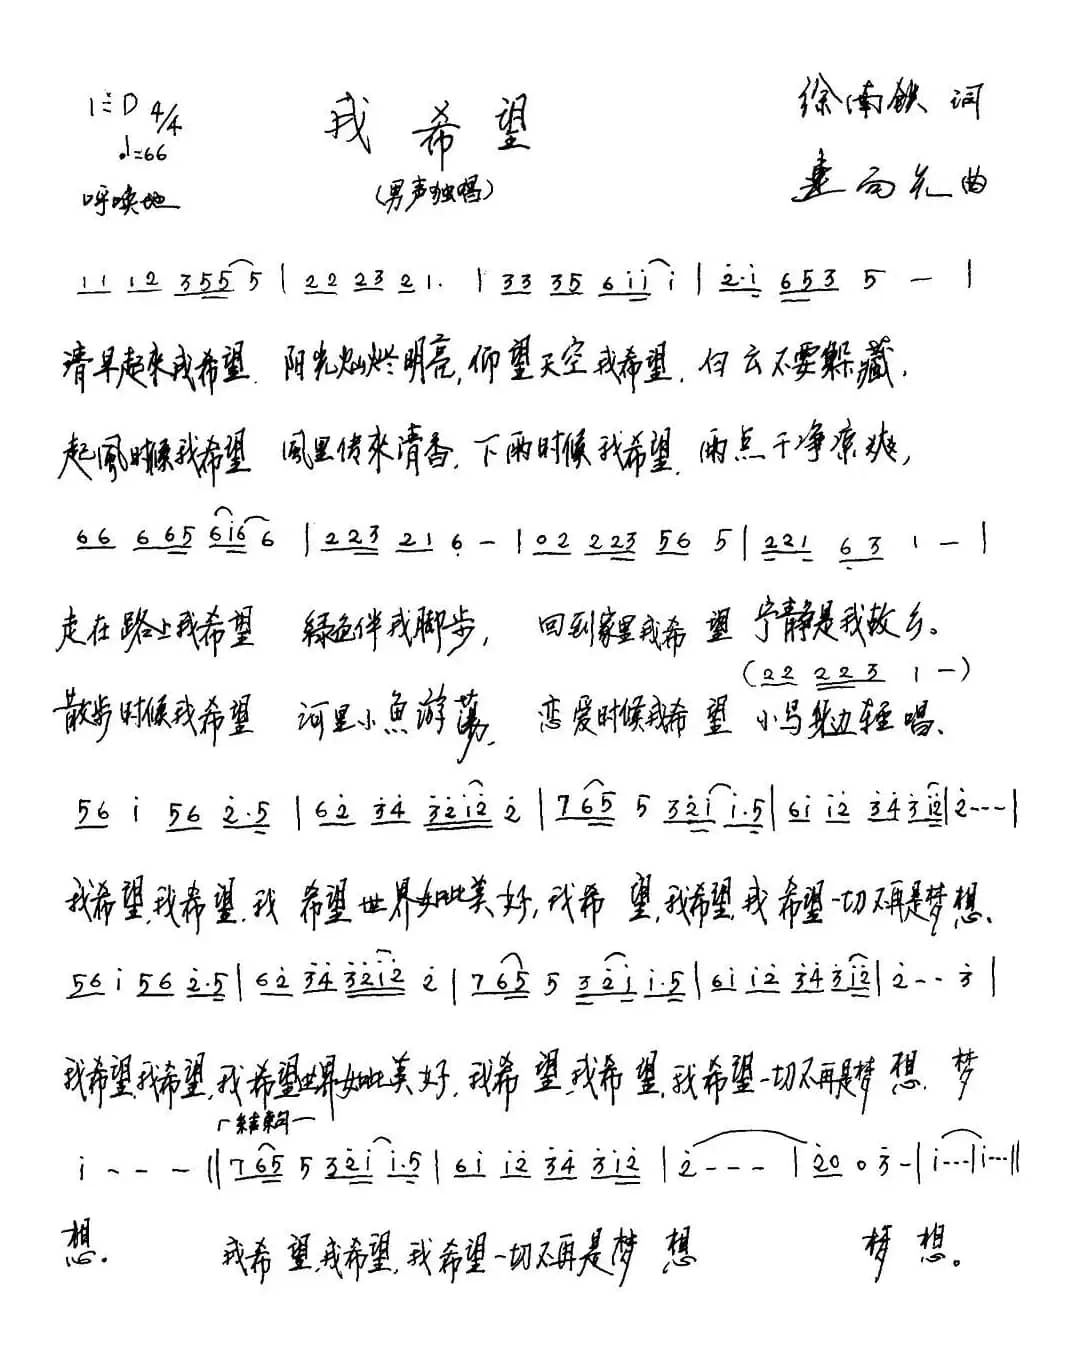 1=D 4/4
♩=66
呼唤地
我希望
(男声独唱)
徐南铁 词
曲
11 12 355 5 | 22 23 21. | 33 35 6i̇i̇ i̇ | 2̇·i̇ 653 5 — |
清早起來我希望. 阳光灿烂明亮, 仰望天空我希望, 白云不要躲藏,
起風时候我希望 風里传來清香, 下雨时候我希望, 雨点干净凉爽,
66 665 6i̇6 6 | 223 21 6̣ — | 02 223 56 5 | 221 6̣3 1 — |
走在路上我希望 绿色伴我脚步, 回到家里我希望 宁静是我故乡。
(22 223 1 —)
散步时候我希望 河里小魚游荡, 恋爱时候我希望 小鸟身边轻唱、
56 i̇ 56 2̇·5 | 62̇ 3̇4̇ 3̇2̇i̇2̇ 2̇ | 765 5 32̇i̇ i̇·5 | 6i̇ i̇2̇ 3̇4̇ 3̇i̇2̇ | 2̇ - - - |
我希望,我希望,我 希望世界如此美好, 我希 望,我希望,我 希望一切不再是梦想、
56 i̇ 56 2̇·5 | 62̇ 3̇4̇ 3̇2̇i̇2̇ 2̇ | 765 5 32̇i̇ i̇·5 | 6i̇ i̇2̇ 3̇4̇ 3̇i̇2̇ | 2̇ - - 3̇ |
我希望,我希望,我 希望世界如此美好, 我希 望,我希 望,我 希望一切不再是梦 想, 梦
结束句
i̇ - - - || 765 5 32̇i̇ i̇·5 | 6i̇ i̇2̇ 3̇4̇ 3̇i̇2̇ | 2̇ - - - | 2̇0 0 3̇ - | i̇ - - - | i̇ - - - ||
想. 我希 望,我希望,我 希望一切不再是梦 想 梦 想。